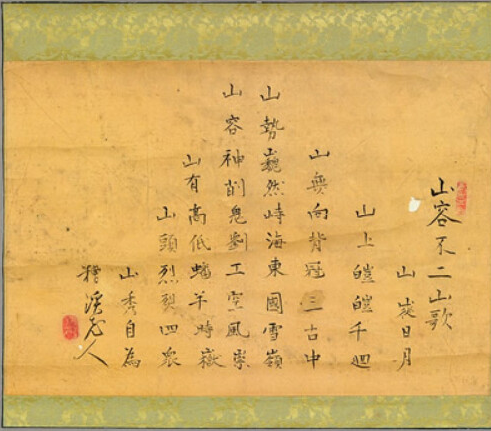 山容不二山歌
山嵗日月
山上皚皚千廻
山無向背冠三古中
山勢巍然峙海東國雪嶺
山容神削鬼劃工空風崇
山有高低蟠羊時嶽
山頭烈裂四衆
山秀自為
老人